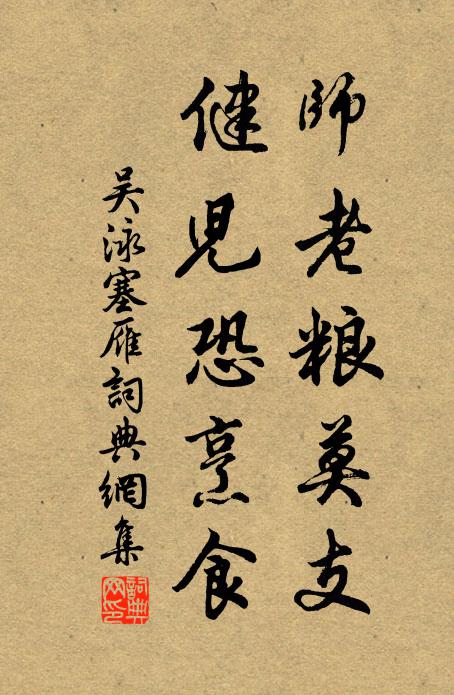 師老粮莫支
健児恐烹食
吴泳塞雁詞典網集
詞典網印